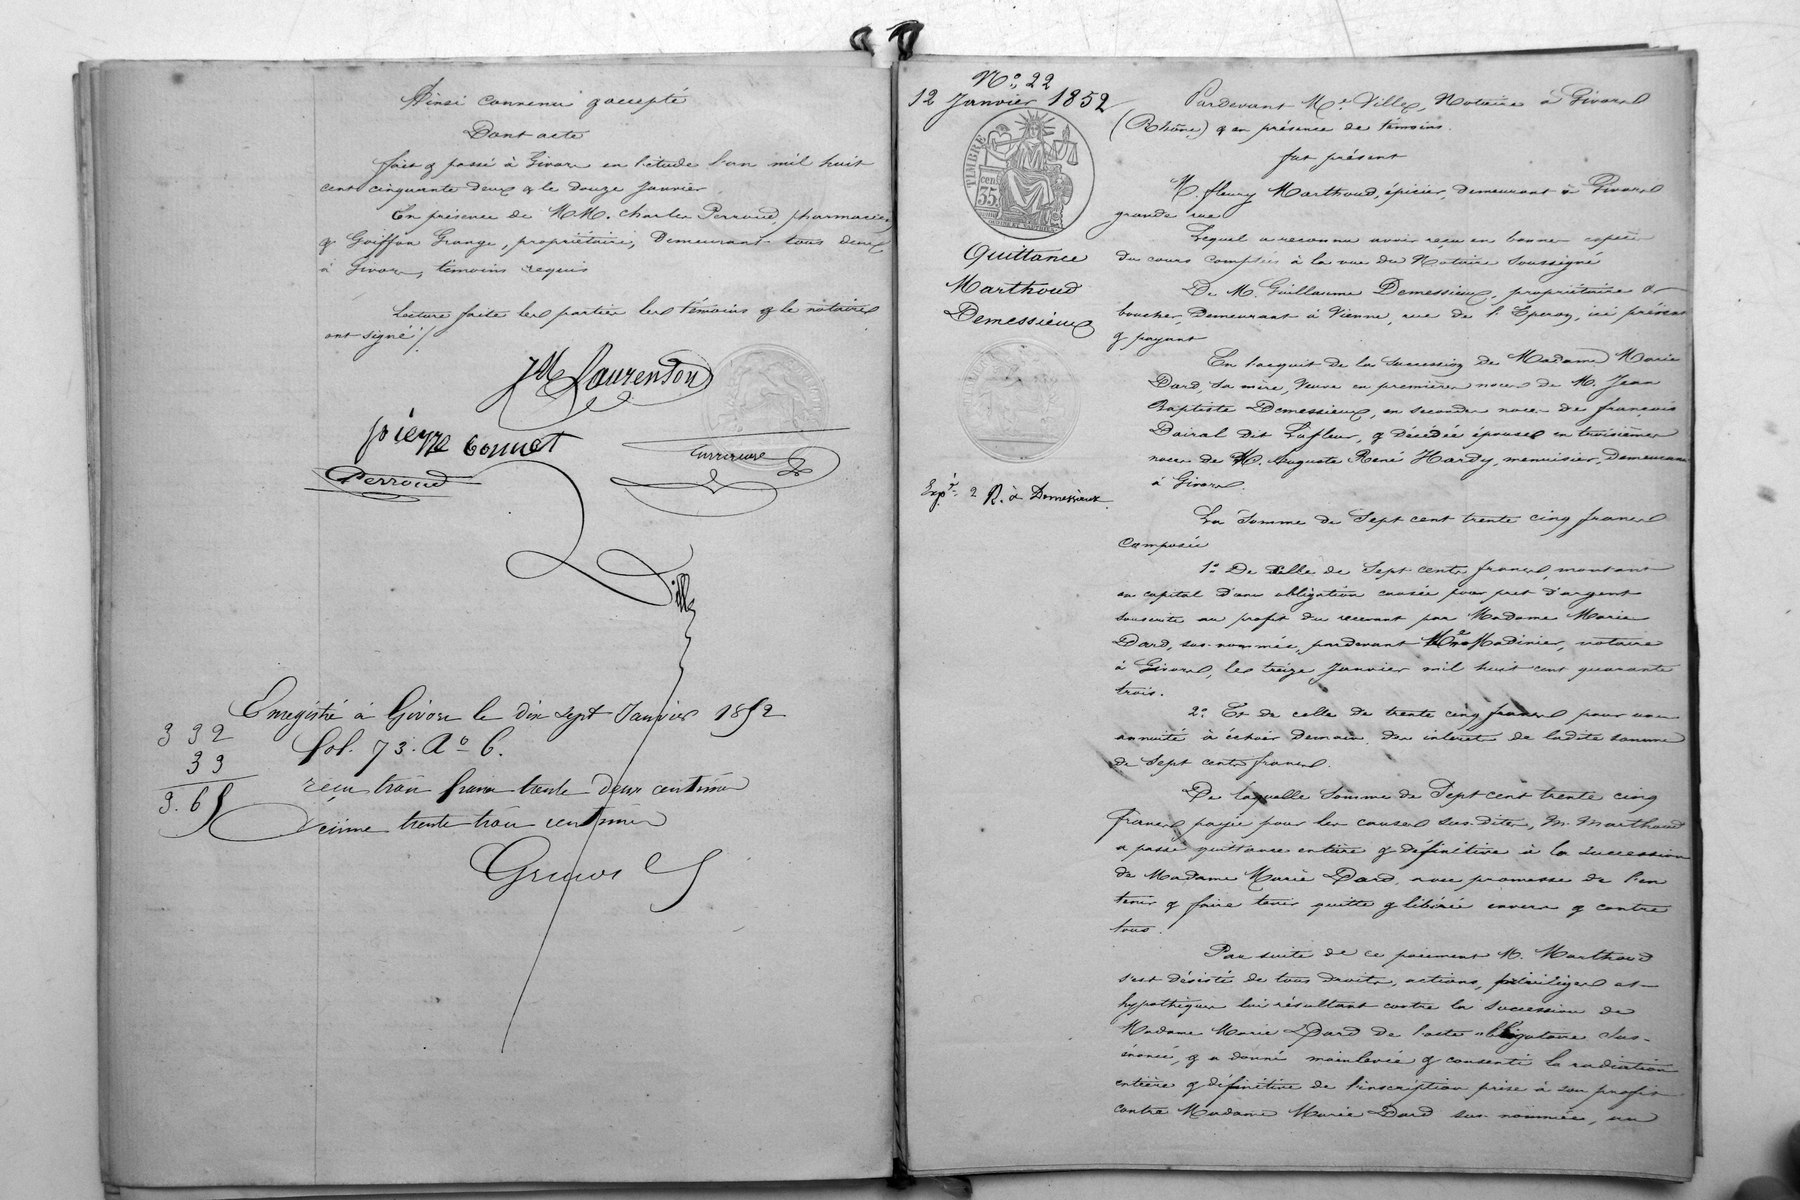 Ainsi convenu & accepté
Dont acte
fait & passé à Givors en l'étude l'an mil huit
cent cinquante deux & le douze Janvier
En présence de MM. Charles Perroud, pharmacien,
& Goiffon Grange, propriétaire, Demeurant tous deux
à Givors, témoins requis
Lecture faite les parties les témoins & le notaire
ont signé /.
JM Laurenson
pierre Connet
Perroud
Ville
Enregistré à Givors le dix sept Janvier 1852
fol. 73. Ro 6.
reçu trois francs trente deux centimes
décime trente trois centimes
3 32
33
3.65
No. 22
12 Janvier 1852
TIMBRE
35 cent
Quittance
Marthoud
Demessieux
Exp. 2 R. à Demessieux.
Pardevant Me. Ville, Notaire à Givors
(Rhône) & en présence de témoins.
fut présent
M. fleury Marthoud, épicier, demeurant à Givors
grande rue
Lequel a reconnu avoir reçu en bonnes espèces
du cours comptées à la vue du Notaire soussigné
De M. Guillaume Demessieux, propriétaire &
boucher, Demeurant à Vienne, rue de l'Eperon, ici présent
& payant
En l'acquit de la succession de Madame Marie
Dard, sa mère, veuve en premières noces de M. Jean
Baptiste Demessieux, en secondes noces de françois
Dairal dit Lafleur, & décédée épouse en troisièmes
noces de M. Auguste René Hardy, menuisier, Demeurant
à Givors.
La Somme de Sept cent trente cinq francs
Composée
1o. De celle de Sept cents francs, montant
en capital d'une obligation causée pour prêt d'argent
souscrite au profit du recevant par Madame Marie
Dard, sus-nommée, pardevant Me Madinier, notaire
à Givors, le treize Janvier mil huit cent quarante
trois.
2o. Et de celle de trente cinq francs pour une
annuité à échoir demain, des intérêts de ladite somme
de Sept cents francs.
De laquelle Somme de Sept cent trente cinq
francs payée pour les causes sus-dites, M. Marthoud
a passé quittance entière & définitive à la succession
de Madame Marie Dard, avec promesse de l'en
tenir & faire tenir quitte & libérée envers & contre
tous.
Par suite de ce paiement M. Marthoud
s'est désisté de tous droits, actions, privilèges et
hypothèques lui résultant contre la succession de
Madame Marie Dard de l'acte obligatoire sus-
énoncé, & a donné mainlevée & consenti la radiation
entière & définitive de l'inscription prise à son profit
contre Madame Marie Dard sus-nommée, au